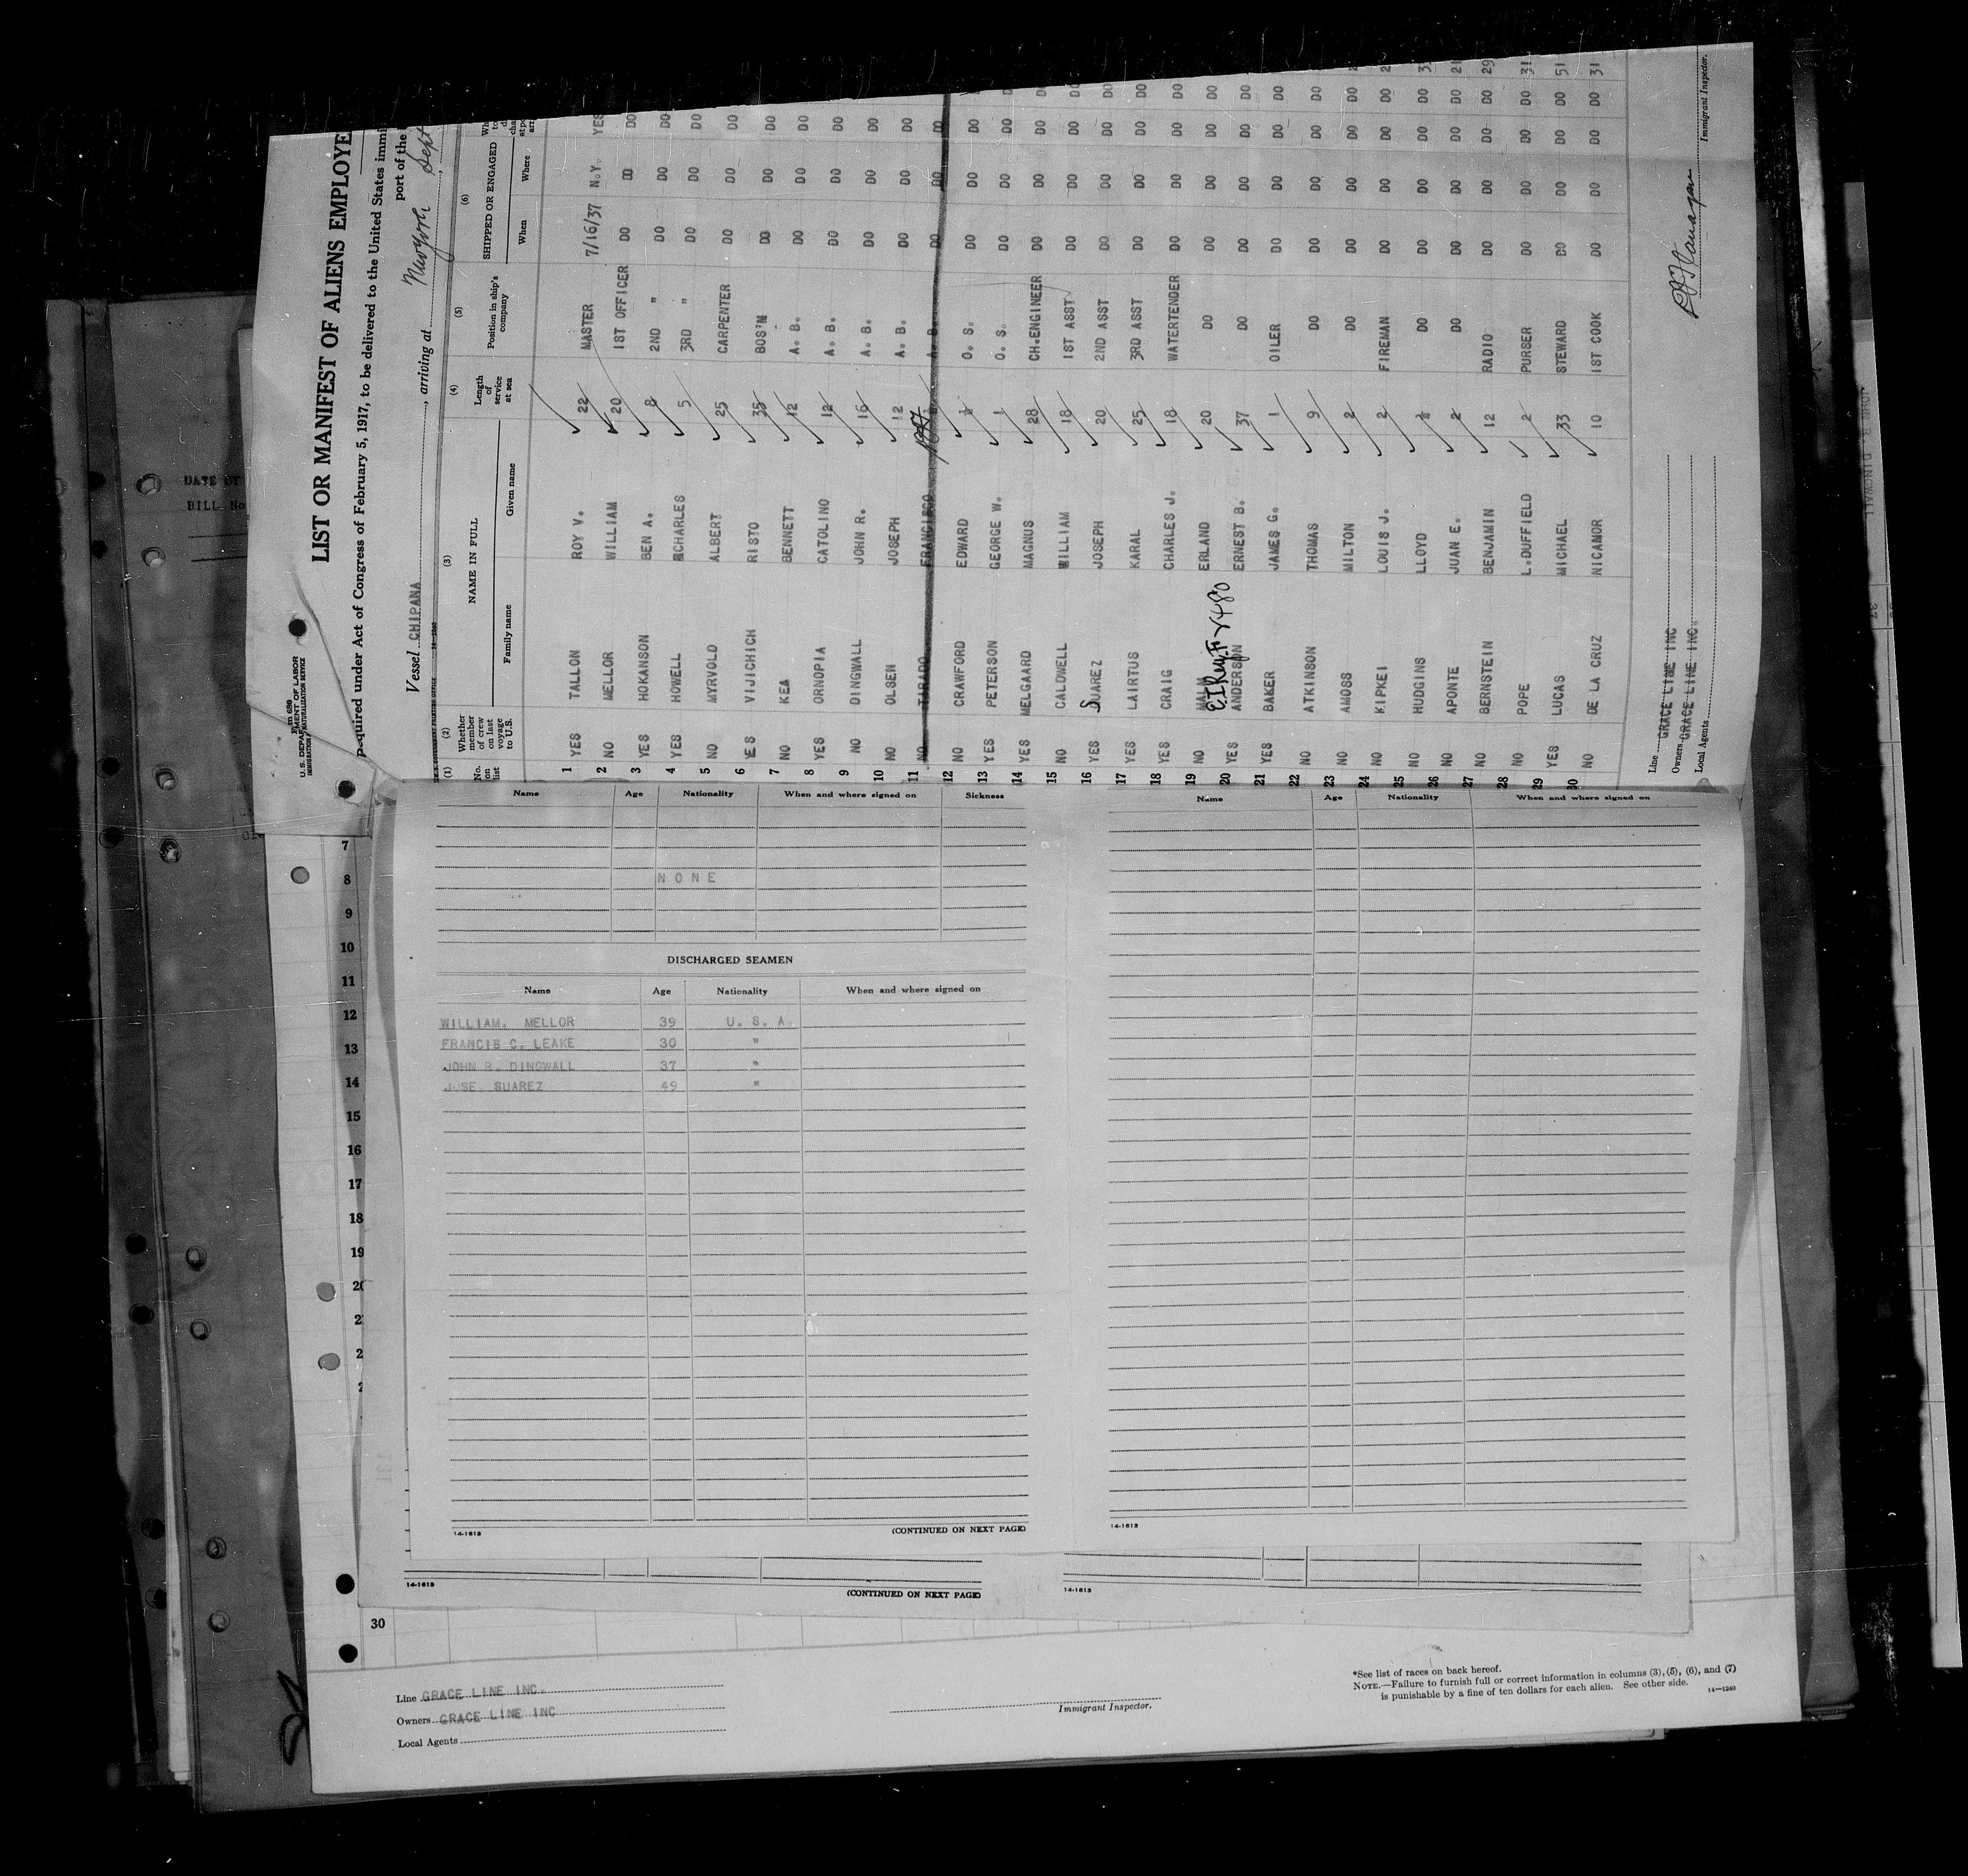 LIST OR MANIFEST OF ALIENS EMPLOYE
Required under Act of Congress of February 5, 1917, to be delivered to the United States immi
port of the
U.S. DEPA MENT OF LABOR
Vessel CHIPANA, arriving at New York Sept
(1) (2) (3) (4) (5) (6)
No. on list Whether member of crew on last voyage to U.S. NAME IN FULL Length of service at sea Position in ship's company SHIPPED OR ENGAGED
Family name Given name When Where
1 YES TALLON ROY V. 22 MASTER 7/16/37 N.Y. YES
2 NO MELLOR WILLIAM 20 1ST OFFICER DO DO DO
3 YES HOKANSON BEN A. 8 2ND " DO DO DO
4 YES HOWELL CHARLES 5 3RD " DO DO DO
5 NO MYRVOLD ALBERT 25 CARPENTER DO DO DO
6 YES VIJICHICH RISTO 35 BOS'N DO DO DO
7 NO KEA BENNETT 12 A. B. DO DO DO
8 YES ORNOPIA CATOLINO 12 A. B. DO DO DO
9 NO DINGWALL JOHN R. 16 A. B. DO DO DO
10 NO OLSEN JOSEPH 12 A. B. DO DO DO
11 NO TIRADO FRANCISCO A. B. DO DO DO
12 NO CRAWFORD EDWARD ½ O. S. DO DO DO
13 YES PETERSON GEORGE W. 1 O. S. DO DO DO
14 YES MELGAARD MAGNUS 28 CH.ENGINEER DO DO DO DO
15 NO CALDWELL WILLIAM 18 1ST ASST DO DO DO DO
16 YES SUAREZ JOSEPH 20 2ND ASST DO DO DO DO
17 YES LAIRTUS KARAL 25 3RD ASST DO DO DO DO
18 YES CRAIG CHARLES J. 18 WATERTENDER DO DO DO DO
19 NO MALM ERLAND 20 DO DO DO DO DO
20 YES ANDERSON ERNEST B. 37 DO DO DO DO DO
21 YES BAKER JAMES G. 1 OILER DO DO DO DO
22 NO ATKINSON THOMAS 9 DO DO DO DO DO
23 NO AMOSS MILTON 2 DO DO DO DO DO
24 NO KIPKEI LOUIS J. 2 FIREMAN DO DO DO DO
25 NO HUDGINS LLOYD ½ DO DO DO DO DO
26 NO APONTE JUAN E. 2 DO DO DO DO DO 21
27 NO BERNSTEIN BENJAMIN 12 RADIO DO DO DO DO 29
28 NO POPE L.DUFFIELD 2 PURSER DO DO DO DO 31
29 YES LUCAS MICHAEL 33 STEWARD DO DO DO DO 51
30 NO DE LA CRUZ NICANOR 10 1ST COOK DO DO DO DO 31
Line GRACE LINE INC
Owners GRACE LINE INC.
Local Agents
Immigrant Inspector.
DATE OF
BILL No
Name Age Nationality When and where signed on Sickness
NONE
DISCHARGED SEAMEN
Name Age Nationality When and where signed on
WILLIAM. MELLOR 39 U. S. A.
FRANCIS C. LEAKE 30 "
JOHN R. DINGWALL 37 "
JOSE. SUAREZ 49 "
14-1613
(CONTINUED ON NEXT PAGE)
Name Age Nationality When and where signed on
14-1613
14-1613
(CONTINUED ON NEXT PAGE)
14-1613
7
8
9
10
11
12
13
14
15
16
17
18
19
30
Line GRACE LINE INC.
Owners GRACE LINE INC
Local Agents
Immigrant Inspector.
*See list of races on back hereof.
NOTE.—Failure to furnish full or correct information in columns (3), (5), (6), and (7)
is punishable by a fine of ten dollars for each alien. See other side.
14—1240